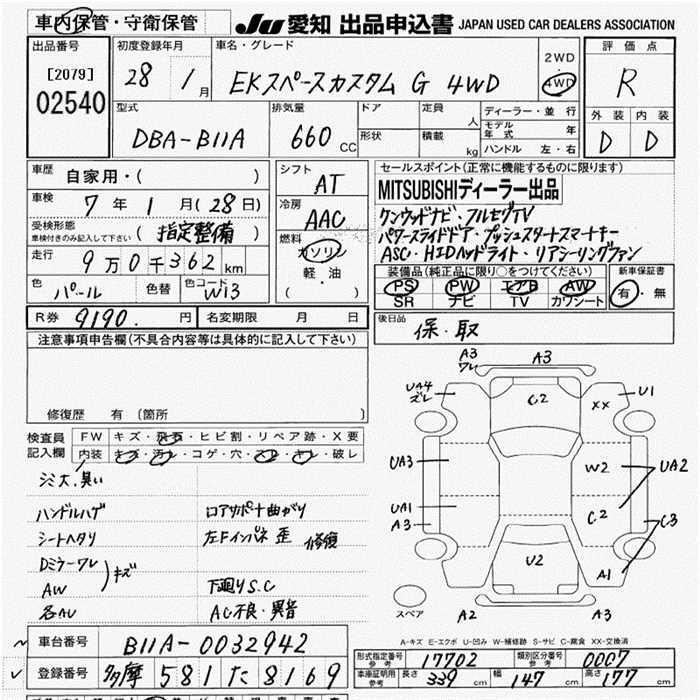 車内保管・守衛保管
JU 愛知 出品申込書 JAPAN USED CAR DEALERS ASSOCIATION
出品番号 [2079] 02540
初度登録年月 28 1月
車名・グレード EKスペースカスタム G 4WD
2WD・4WD
評価点 R
外装 D 内装 D
型式 DBA-B11A
排気量 660 CC
ドア 形状
定員 人 積載 kg
ディーラー・並行
モデル年式 年
ハンドル 左・右
車歴 自家用・( )
車検 7年 1月(28日)
受検形態 車検付きのみ記入して下さい (指定整備)
走行 9万0千362 km
色 パール 色替 色コード W13
シフト AT
冷房 AAC
燃料 ガソリン 軽・油 ( )
セールスポイント(正常に機能するものに限ります)
MITSUBISHIディーラー出品
ケンウッドナビ・フルセグTV
パワースライドドア・プッシュスタートスマートキー
ASC・HIDヘッドライト・リアシーリングファン
装備品(純正品に限り○をつけてください)
PS PW エアB AW
SR ナビ TV カワシート
新車保証書 有・無
R券 9190. 円 名変期限 月 日
後日品 保・取
注意事項申告欄(不具合内容等は具体的に記入して下さい)
修復歴 有 〔箇所 〕
検査員記入欄
FW キズ・飛石・ヒビ割・リペア跡・X要
内装 キズ・汚レ・コゲ・穴・スレ・キレ・破レ
シミ大、臭い
ハンドルハゲ
シートヘタリ
Dミラーワレ
AW
各AU
キズ
コアサポート曲がり
左Fインパネ 歪 修復
下廻りS.C
AC不良・異音
A3 ワレ
A3
UA4 ズレ
C2
XX
U1
UA3
W2
UA2
UA1
A3
C2
C3
U2
A1
スペア
A2
A3
A-キズ E-エクボ U-凹み W-補修跡 S-サビ C-腐食 XX-交換済
車台番号 B11A-0032942
登録番号 多摩 581 た 8169
形式指定番号 参考 17702
類別区分番号 参考 0007
車庫証明用 参考 長さ 339 cm 幅 147 cm 高さ 177 cm